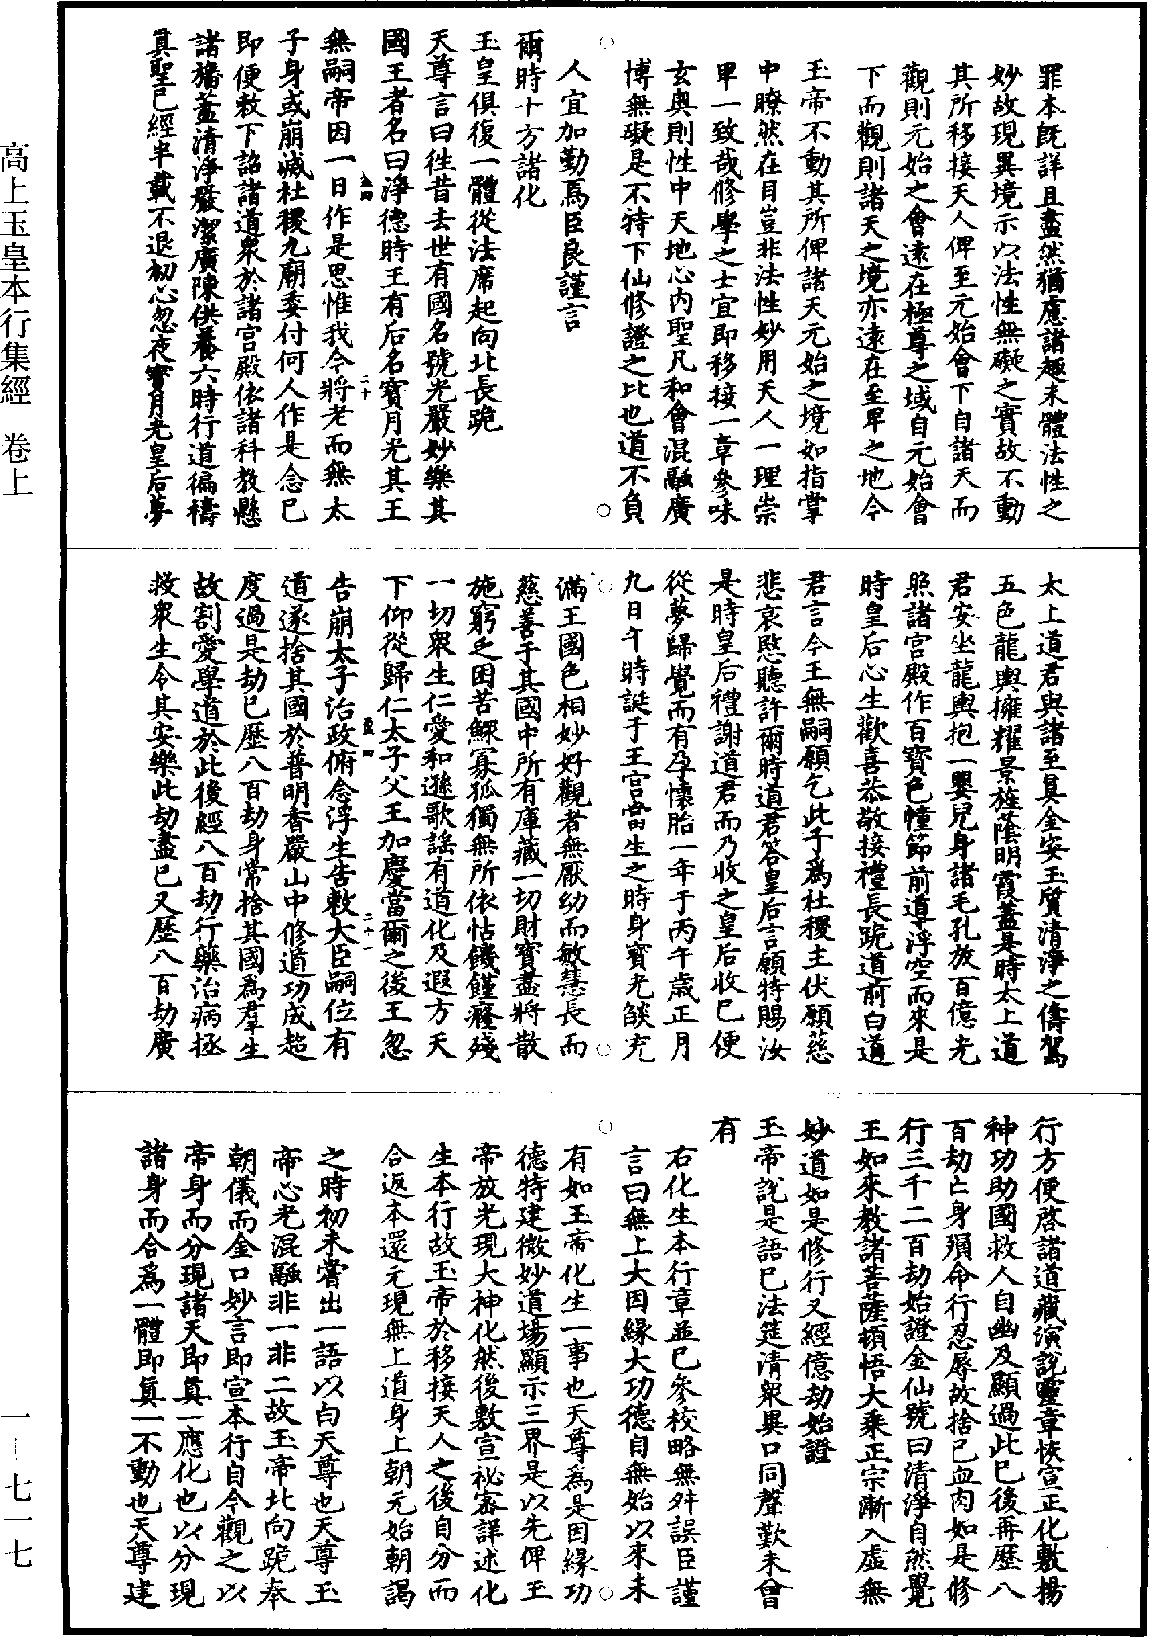 高上玉皇本行集經　卷上
罪本既詳且盡然猶慮諸趣未體法性之
妙故現異境示以法性無礙之實故不動
其所移接天人俾至元始會下自諸天而
觀則元始之會遠在極尊之域自元始會
下而觀則諸天之境亦遠在至卑之地今
玉帝不動其所俾諸天元始之境如指掌
中瞭然在目豈非法性妙用天人一理崇
卑一致哉修學之士宜即移接一章參味
玄奧則性中天地心內聖凡和會混融廣
博無礙是不待下仙修證之比也道不負
人宜加勤焉臣良謹言
爾時十方諸化
玉皇俱復一體從法席起向北長跪
天尊言曰徃昔去世有國名號光嚴妙樂其
國王者名曰淨德時王有后名寶月光其王
無嗣帝因一日作是思惟我今將老而無太
子身或崩滅社稷九廟委付何人作是念已
即便敕下詔諸道衆於諸宮殿依諸科教懸
諸旛蓋清淨嚴潔廣陳供養六時行道徧禱
真聖已經半載不退初心忽夜寶月光皇后夢
二十
太上道君與諸至真金姿玉質清淨之儔駕
五色龍輿擁耀景旌蔭明霞蓋是時太上道
君安坐龍輿抱一嬰兒身諸毛孔放百億光
照諸宮殿作百寶色幢節前導浮空而來是
時皇后心生歡喜恭敬接禮長跪道前白道
君言今王無嗣願乞此子爲社稷主伏願慈
悲哀愍聽許爾時道君答皇后言願特賜汝
是時皇后禮謝道君而乃收之皇后收已便
從夢歸覺而有孕懷胎一年于丙午歲正月
九日午時誕于王宮當生之時身寶光燄充
滿王國色相妙好觀者無厭幼而敏慧長而
慈善于其國中所有庫藏一切財寶盡將散
施窮乏困苦鰥寡孤獨無所依怙饑饉癃殘
一切衆生仁愛和遜歌謡有道化及遐方天
下仰從歸仁太子父王加慶當爾之後王忽
告崩太子治政俯念浮生告敕大臣嗣位有
道遂捨其國於普明香嚴山中修道功成超
度過是劫已歷八百劫身常捨其國爲羣生
故割愛學道於此後經八百劫行藥治病拯
救衆生令其安樂此劫盡已又歷八百劫廣
二十一
行方便啓諸道藏演說靈章恢宣正化敷揚
神功助國救人自幽及顯過此已後再歷八
百劫亡身殞命行忍辱故捨己血肉如是修
行三千二百劫始證金仙號曰清淨自然覺
王如來教諸菩薩頓悟大乘正宗漸入虛無
妙道如是修行又經億劫始證
玉帝說是語已法筵清衆異口同聲歎未曾
有
右化生本行章並已參校略無舛誤臣謹
言曰無上大因緣大功德自無始以來未
有如玉帝化生一事也天尊為是因緣功
德特建微妙道場顯示三界是以先俾玉
帝放光現大神化然後敷宣祕密詳述化
生本行故玉帝於移接天人之後自分而
合返本還元現無上道身上朝元始朝謁
之時初未嘗出一語以白天尊也天尊玉
帝心光混融非一非二故玉帝北向跪奉
朝儀而金口妙言即宣本行自今觀之以
帝身而分現諸天即真一應化也以分現
諸身而合爲一體即真一不動也天尊建
一—七一七